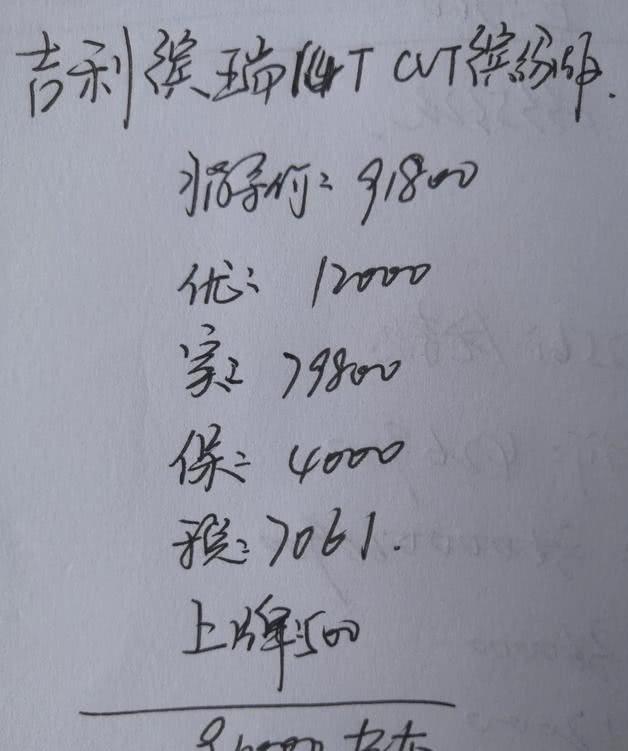 吉利缤瑞14T CVT缤纷版.
指导价: 91800
优: 12000
实: 79800
保: 4000
税: 7061.
上牌:500